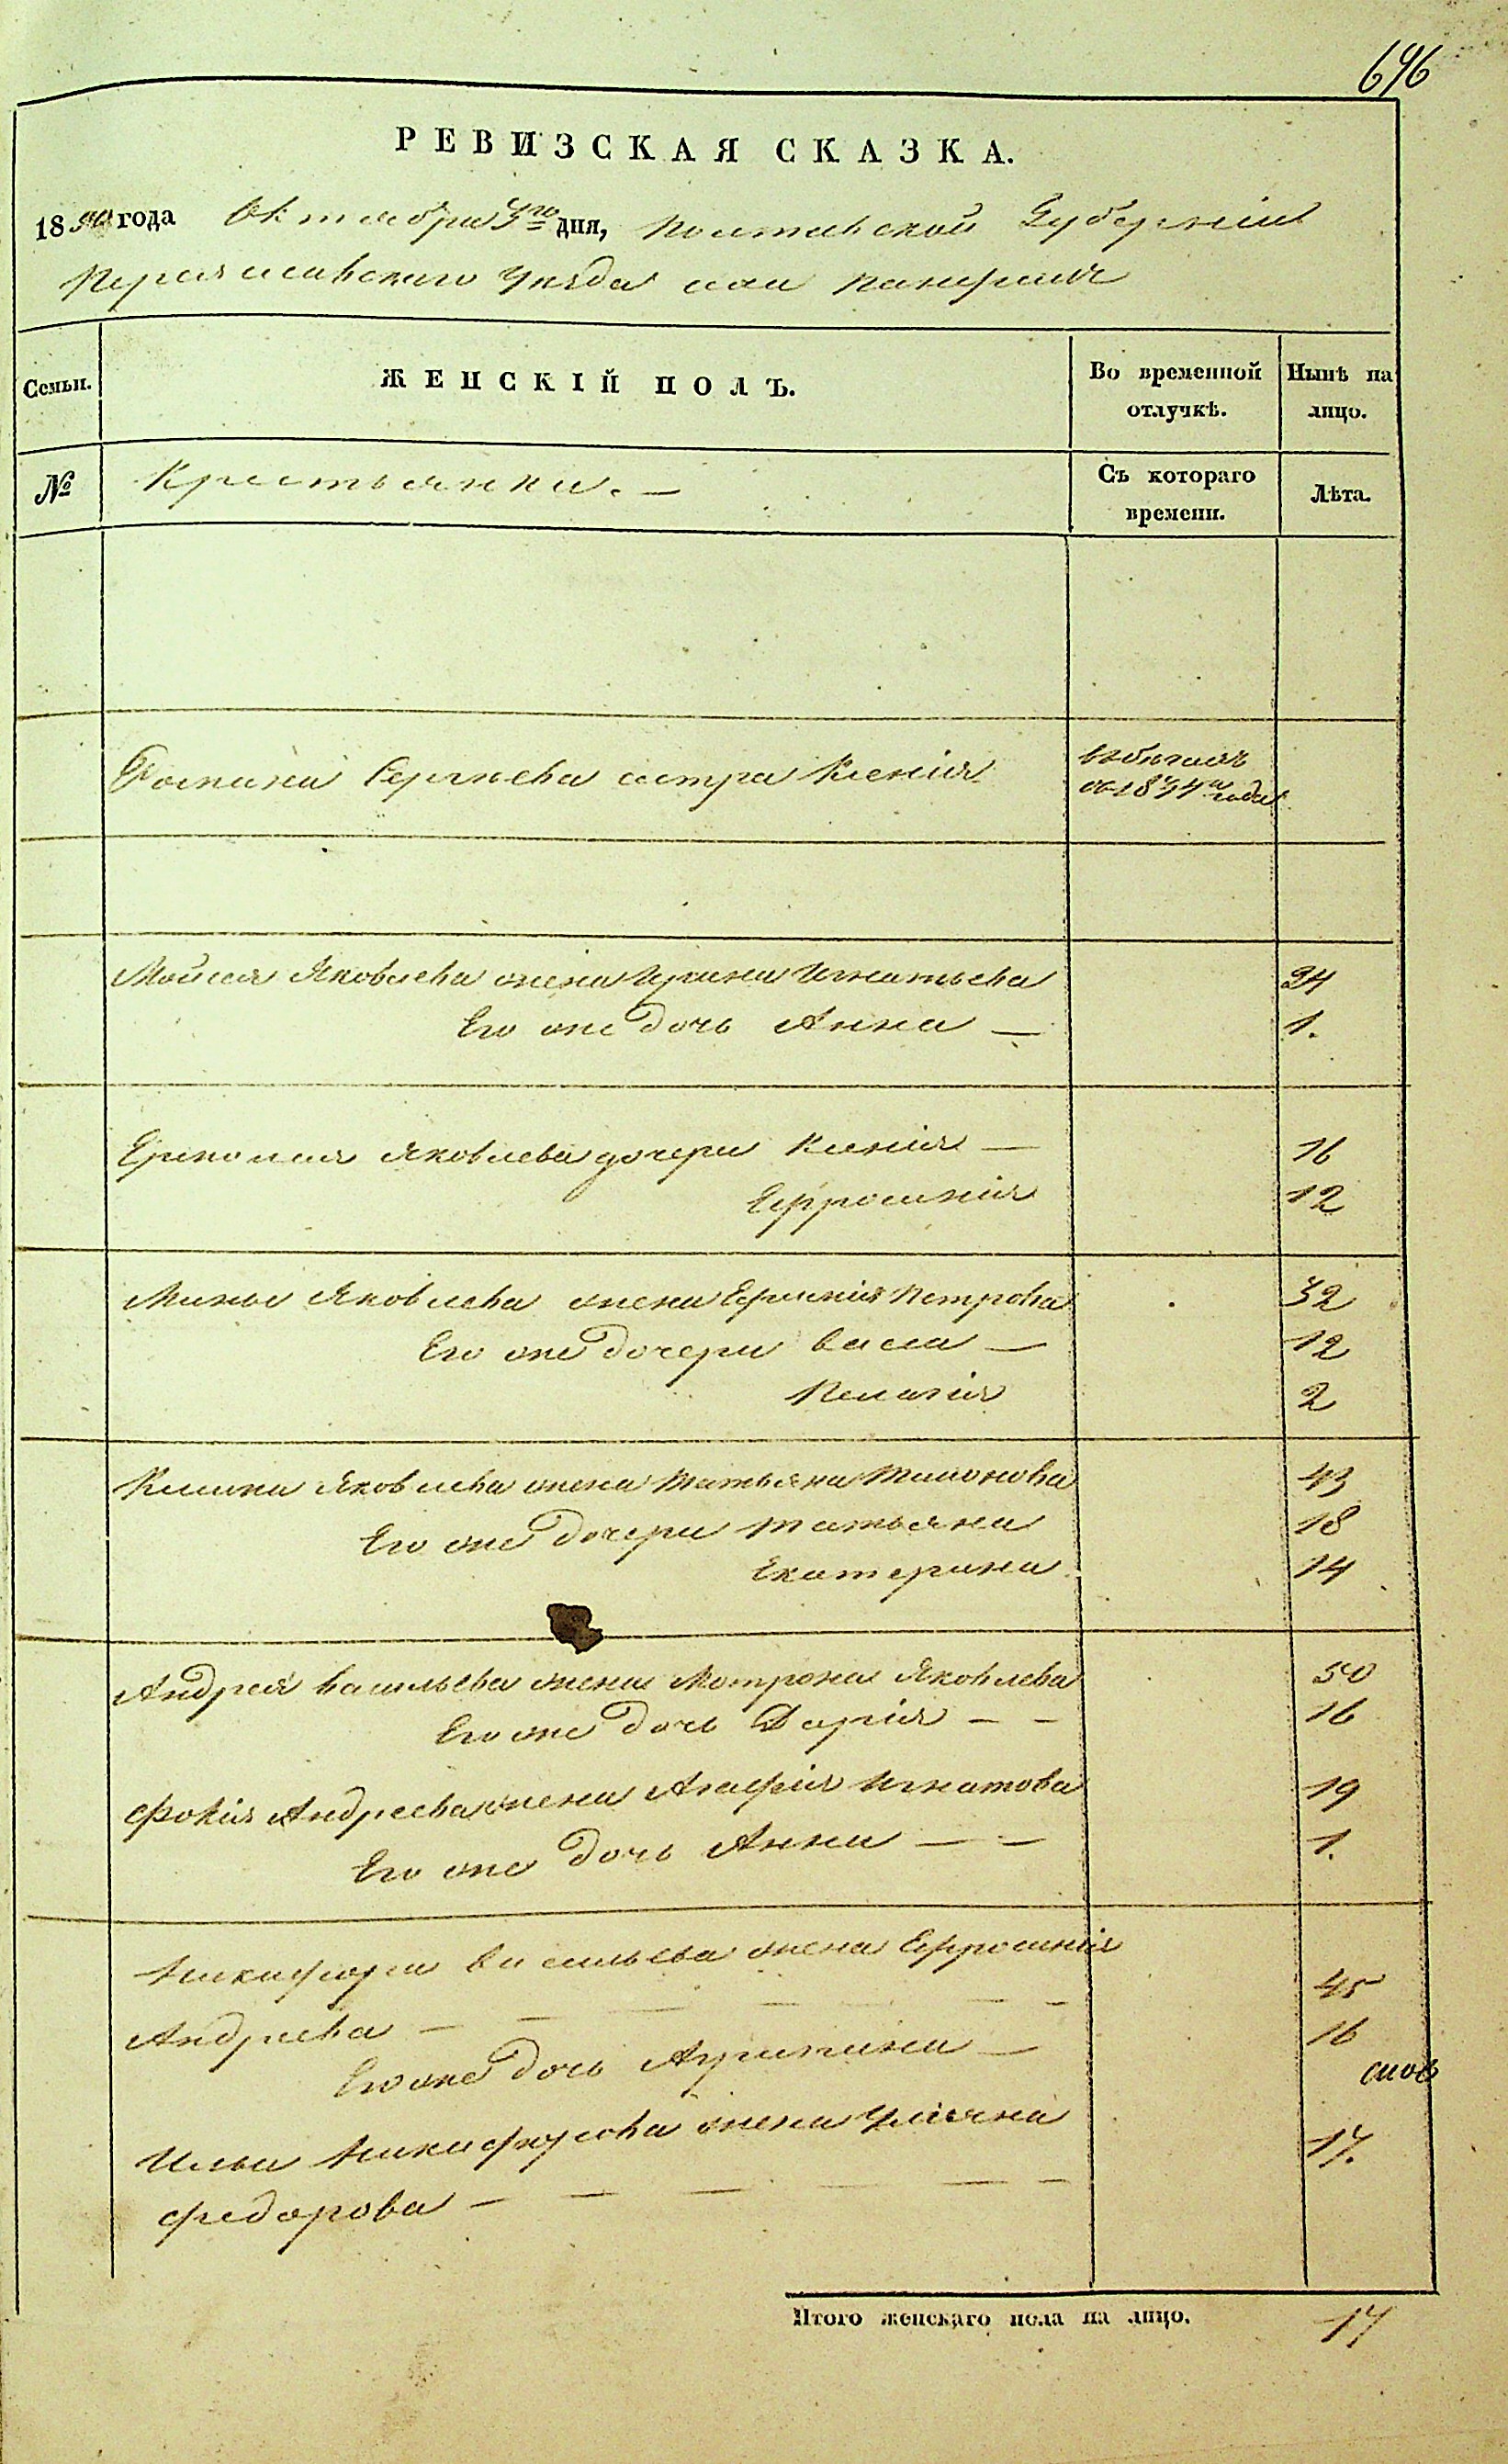 696
РЕВИЗСКАЯ СКАЗКА.
1850 года Октября 3го дня, Полтавской Губерніи
Переяславского Уѣзда села Панфилъ
Семьи.
ЖЕНСКІЙ ПОЛЪ.
Во временной отлучкѣ.
Нынѣ на лицо.
№
Крестьянки. —
Съ котораго времени.
Лѣта.
Сергѣева сестра Ксенія
въ бѣгахъ
съ 1844 года
Мойсея Яковлева жена Ирина Игнатьева 24
Его же дочь Анна — 1.
Ермолая Яковлева дочери Ксенія — 16
Ефросинія 12
Мины Яковлева жена Ефимія Петрова 32
Его же дочери Васса — 12
Пелагія 2
Климы Яковлева жена Татьяна Тимонова 43
Его же дочери Татьяна 18
Екатерина 14
Андрея Васильева жена Мотрона Яковлева 50
Его же дочь Дарія — — 16
Фокія Андреева жена Агафія Игнатова 19
Его же дочь Анна — — 1.
Никифора Васильева жена Ефросинія
Андреева — — — — — 45
Его же дочь Агрипина — 16
Ильи Никифорова жена Уліяна
Федорова — — — — — 17.
Итого женскаго пола на лицо. 17